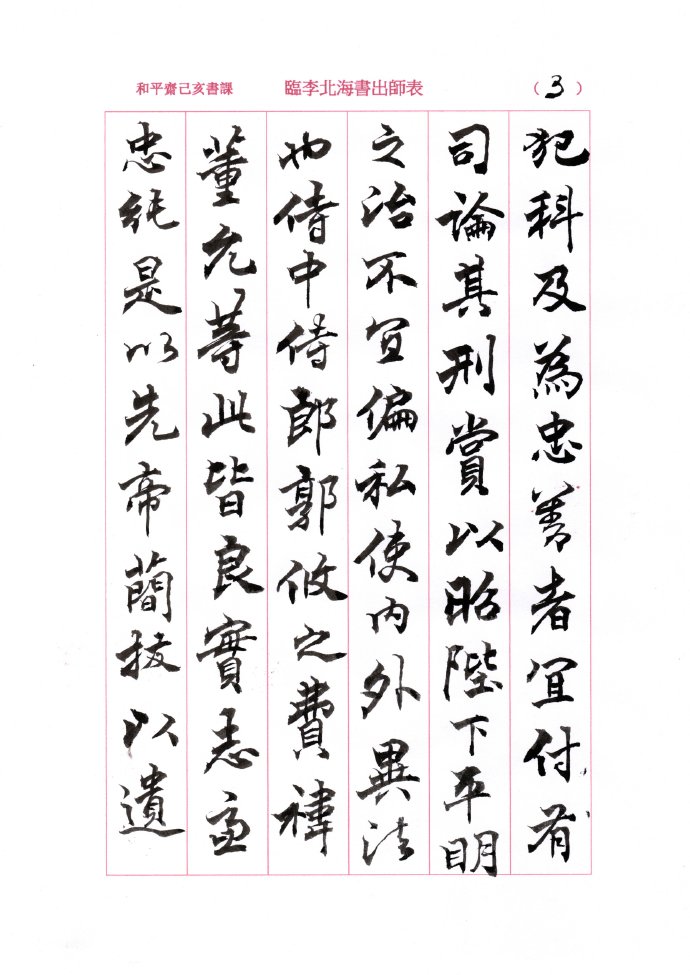 和平齋己亥書課 臨李北海書出師表 (3)
犯科及為忠善者宜付有
司論其刑賞以昭陛下平明
之治不宜偏私使內外異法
也侍中侍郎郭攸之費禕
董允等此皆良實志慮
忠純是以先帝簡拔以遺